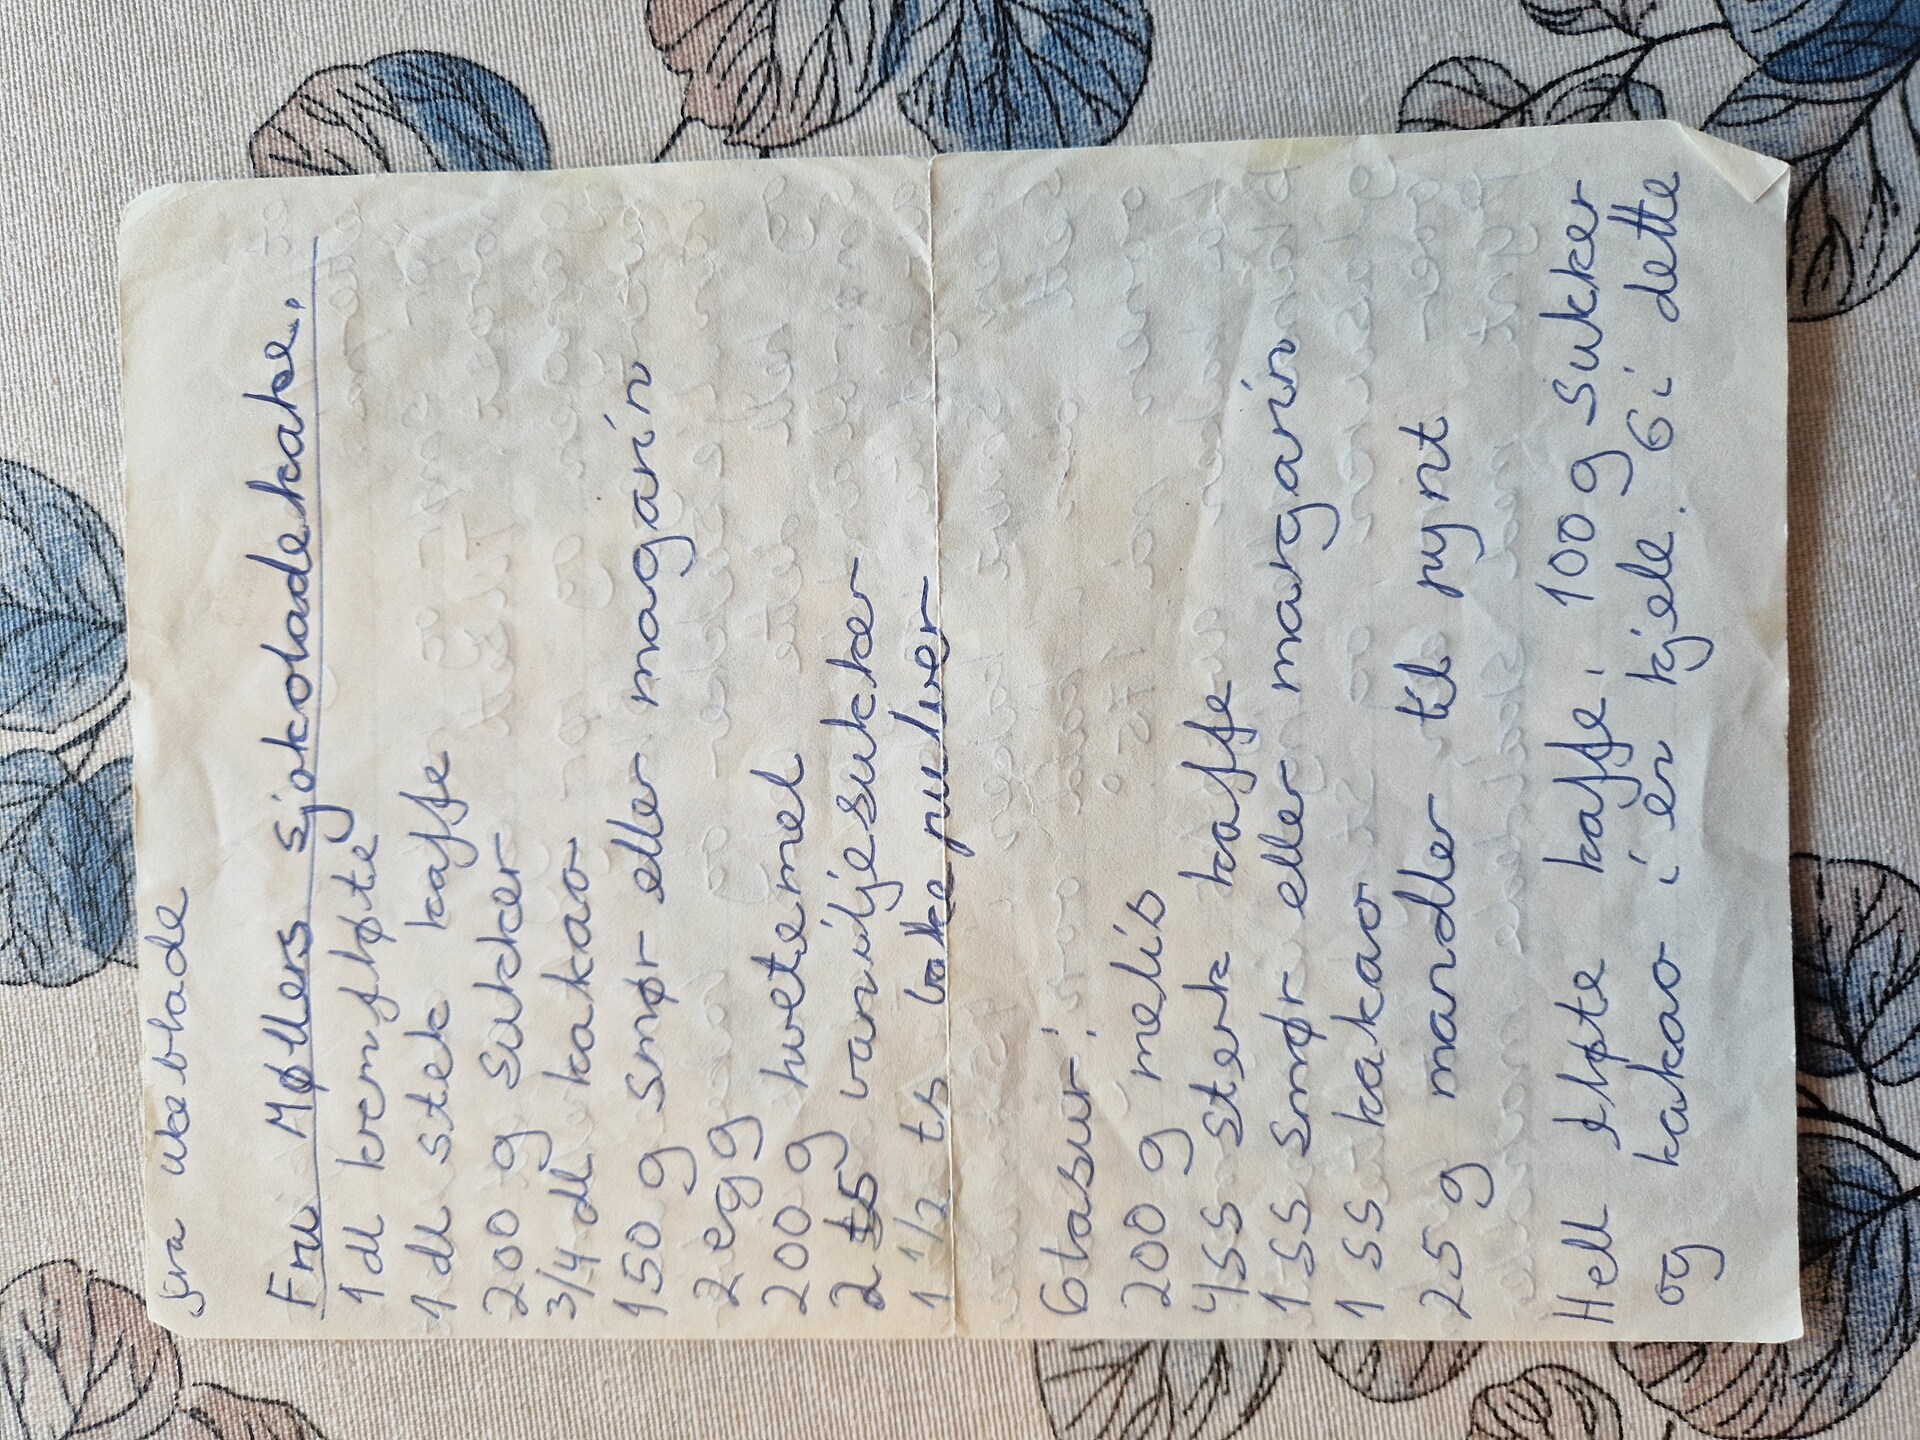 fra ukeblade
Fru Møllers sjokoladekake.
1 dl kremfløte
1 dl stek kaffe
200 g sukker
3/4 dl kakao
150 g smør eller magarin
2 egg
200 g hvetemel
2 ts vaniljesukker
1 1/2 ts bakepulver
Glasur:
200 g melis
4 ss sterk kaffe
1 ss smør eller margarin
1 ss kakao
25 g mandler til pynt
Hell fløte kaffe, 100 g sukker
og kakao i en kjele. Gi dette